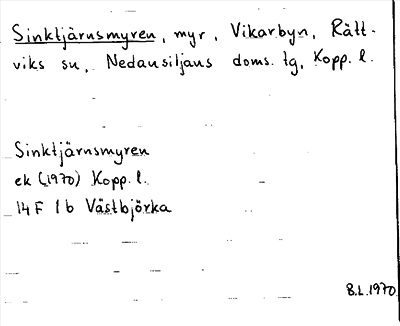 Sinktjärnsmyren, myr, Vikarbyn, Rätt-
viks sn, Nedansiljans doms. tg, Kopp. l.
Sinktjärnsmyren
ek (1970) Kopp. l.
14 F 1 b Västbjörka
B.L. 1970